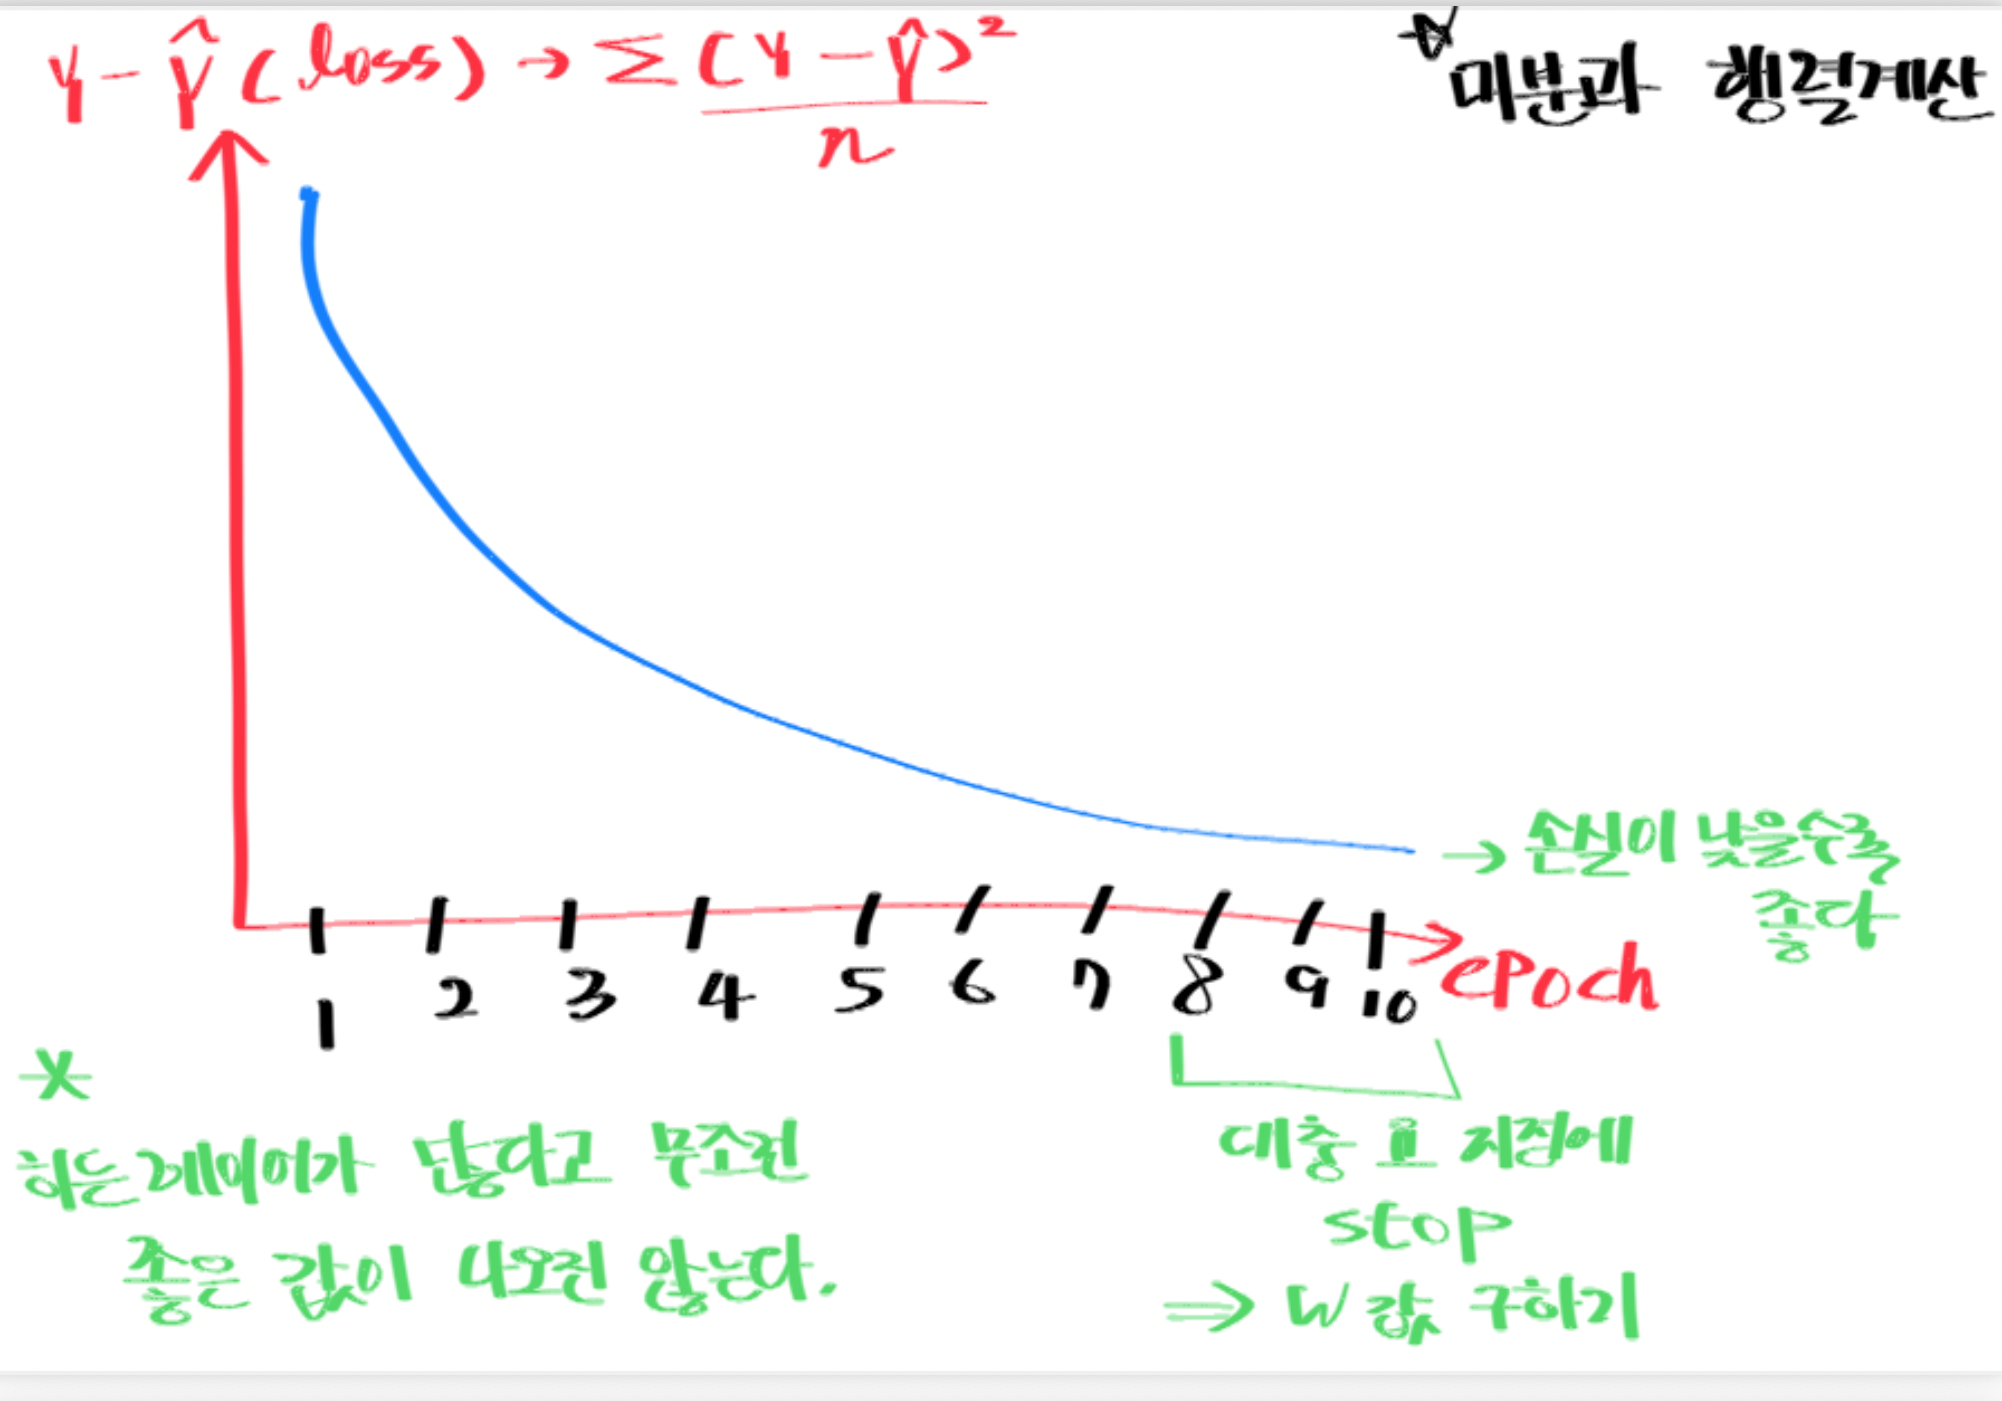 y - ŷ (loss) → Σ (y - ŷ)² / n
☆ 미분과 행렬계산
→ 손실이 낮을수록
좋다
1 2 3 4 5 6 7 8 9 10
epoch
*
히든레이어가 많다고 무조건
좋은 값이 나오진 않는다.
대충 요 지점에
stop
⇒ W값 구하기